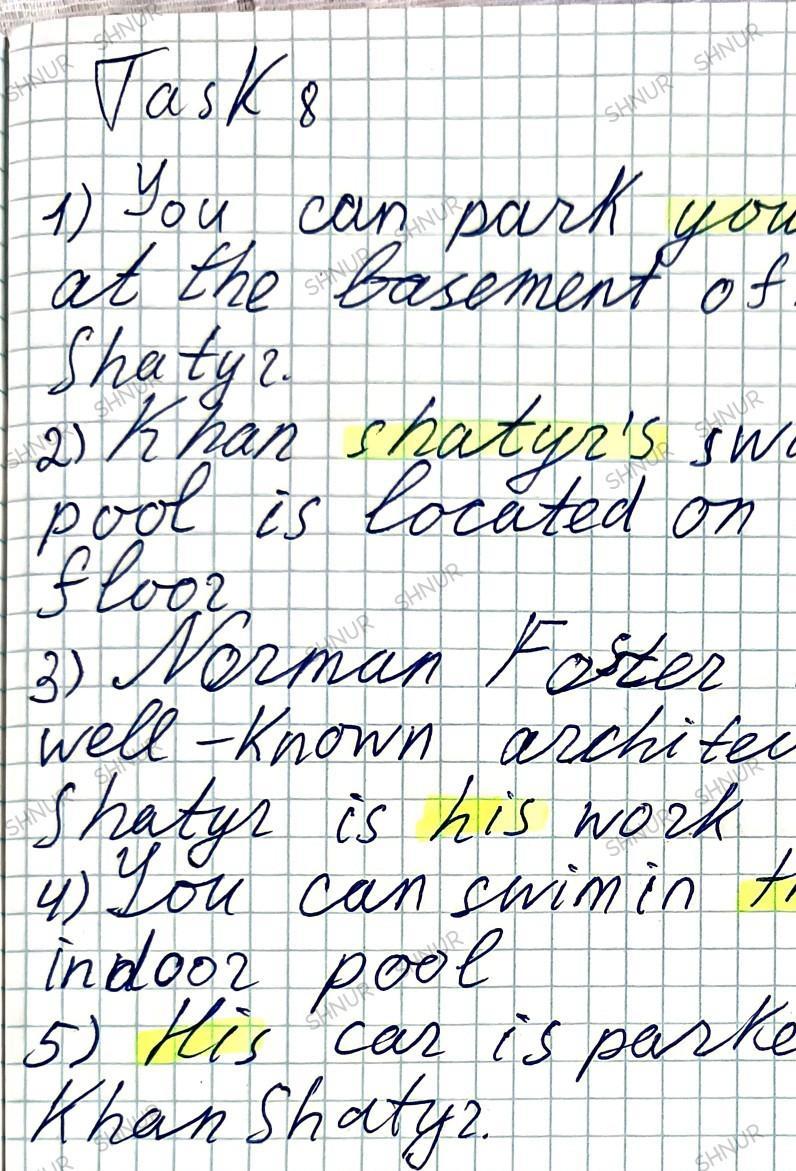 Task 8
1) You can park you
at the basement of
Shatyr.
2) Khan shatyr's sw
pool is located on
floor
3) Norman Foster
well-known architec
Shatyr is his work
4) You can swim in th
indoor pool
5) His car is parke
Khan Shatyr.
SHNUR